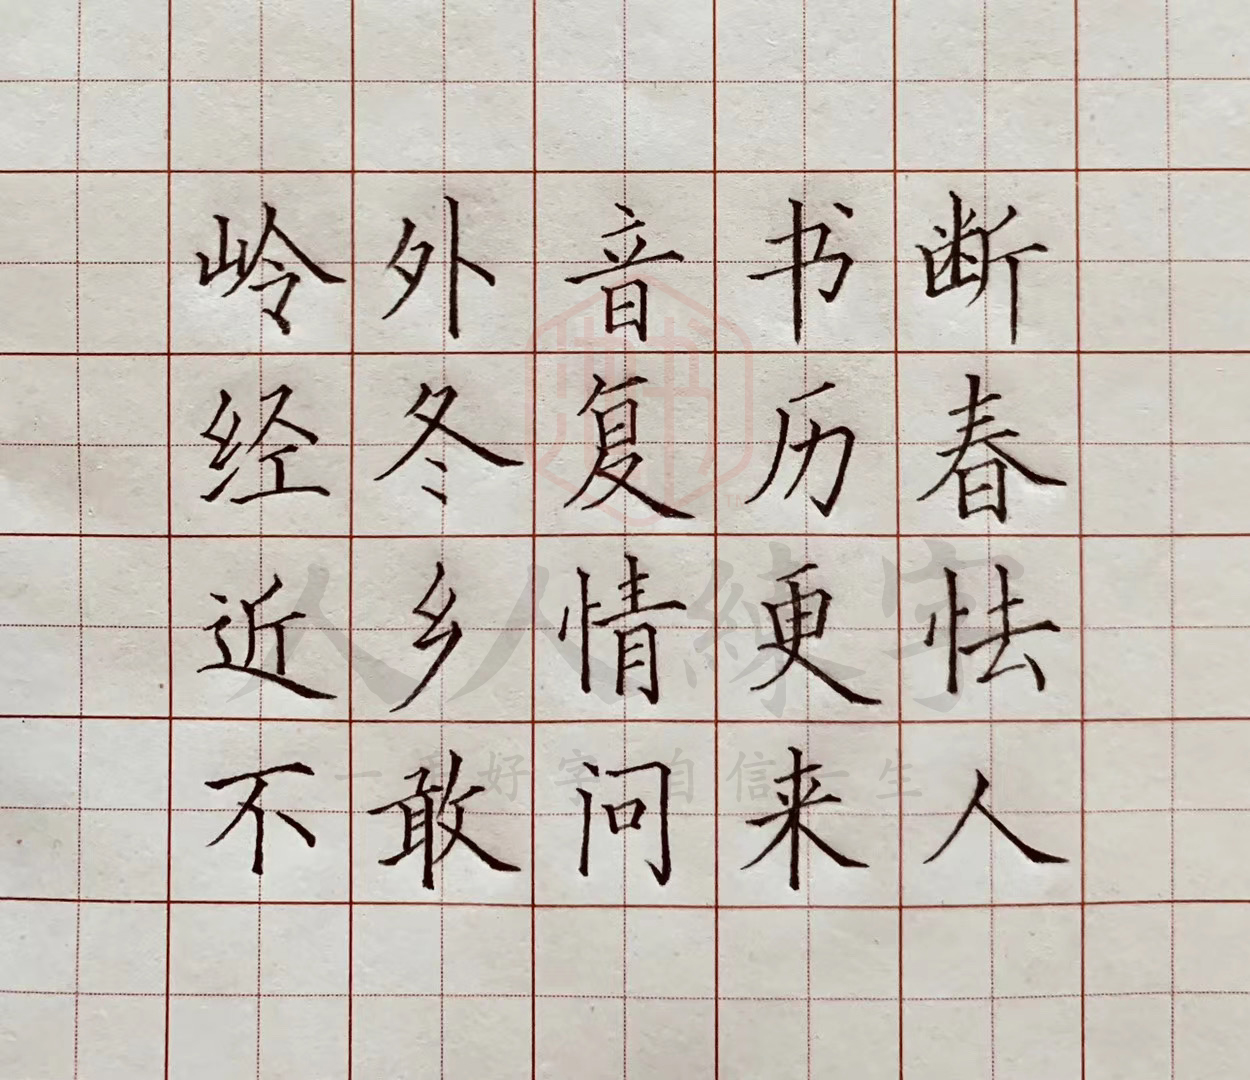 岭外音书断
经冬复历春
近乡情更怯
不敢问来人
人人練字
好字 自信一生